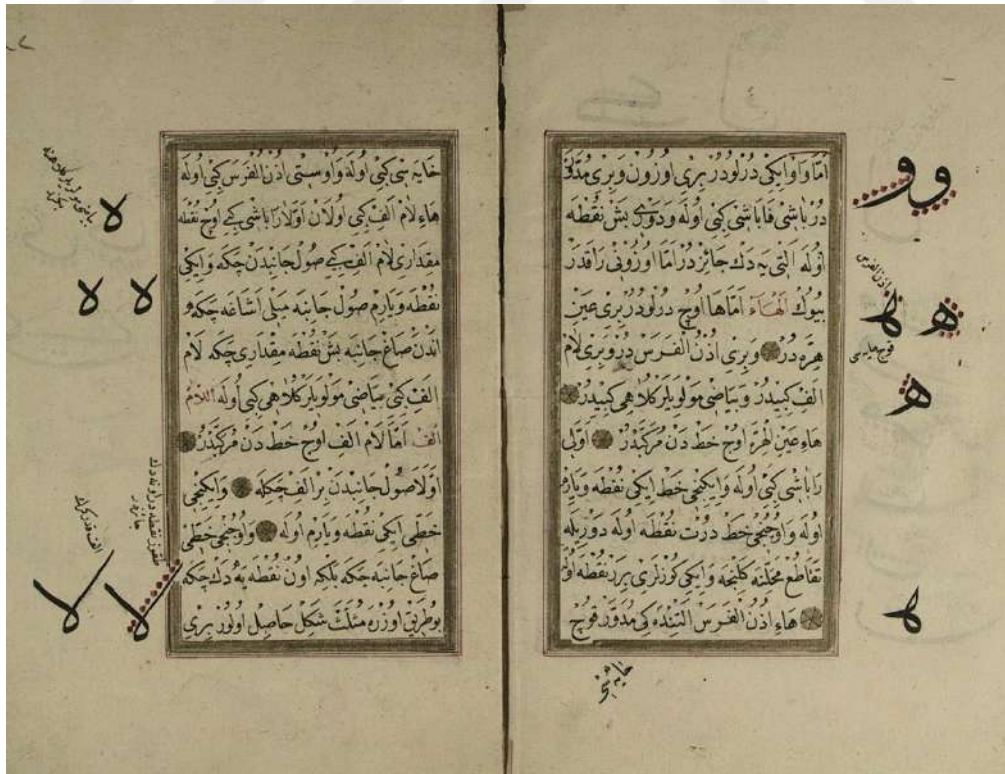 اَمَّا وَاوْ اِيكِى دُرْلُودُرْ بِرِى اوُزُونْ وَبِرِى مُدَوَّرْ
دُرْ بَاشِى فَا بَاشِى كِبِى اُولَه وَدَوْرِى بَشْ نُقْطَه
اوُلَه اَلْتِى يَه دَكْ جَائِزْدُرْ اَمَّا اوُزُونِى رَا قَدَرْ
بيُوكْ اَلْهَاءْ اَمَّا هَا اوُچْ دُرْلُودُرْ بِرِى عَيْنِ
هِرَّه دُرْ وَبِرِى اُذُنُ الْفَرَسْ دُرْ وَبِرِى لاَمْ
اَلِفْ كِبِيدُرْ وَبَيَاضِى مَوْلَوِيلَرْ كُلَاهِى كِبِيدُرْ
هَاءِ عَيْنِ الْهِرَّه اوُچْ خَطْ دَنْ مُرَكَّبْدُرْ اَوَّلِى
رَا بَاشِى كِبِى اوُلَه وَايكِنْجِى خَطْ ايكِى نُقْطَه وَيَارِمْ
اوُلَه وَاوُچُنْجِى خَطْ دُرْتْ نُقْطَه اوُلَه دَوْرِيلَه
تَقَاطُعْ مَحَلِّنَه كَلِنْجَه وَايكِى كُوزْلَرِى بِرَرْ نُقْطَه اوُلَه
هَاءِ اُذُنُ الْفَرَسْ اَلْتِنْدَه كِى مُدَوَّرْ قُوچْ
خَايَه سِى كِبِى اوُلَه وَاوُسْتِى اُذُنُ الْفَرَسْ كِبِى اوُلَه
هَاءِ لاَمْ اَلِفْ كِبِى اوُلاَنْ اَوَّلاَ رَا بَاشِى كِبِى اوُچْ نُقْطَه
مِقْدَارِى لاَمْ اَلِفْ كِبِى صُولْ جَانِبِدَنْ چَكَه وَايكِى
نُقْطَه وَيَارِمْ صُولْ جَانِبَه مَيْلِى اَشَاغَه چَكَه وَ
اَنْدَنْ صَاغْ جَانِبَه بَشْ نُقْطَه مِقْدَارِى چَكَه لاَمْ
اَلِفْ كِبِى بَيَاضِى مَوْلَوِيلَرْ كُلَاهِى كِبِى اُولَه اَللاَّمْ
اَلِفْ اَمَّا لاَمْ اَلِفْ اوُچْ خَطْ دَنْ مُرَكَّبْدُرْ
اَوَّلاَ صُولْ جَانِبِدَنْ بِرْ اَلِفْ چَكِلَه وَايكِنْجِى
خَطِّى ايكِى نُقْطَه وَيَارِمْ اوُلَه وَاوُچُنْجِى خَطِّى
صَاغْ جَانِبَه چَكَه بَلْكِه اوُنْ نُقْطَه يَه دَكْ چَكَه
بُو طَرِيقْ اوُزْرَه مُثَلَّثْ شَكِلْ حَاصِلْ اوُلُورْ بِرِى
و و
اذن الفرس
قوچ خايه سى
خايه سى